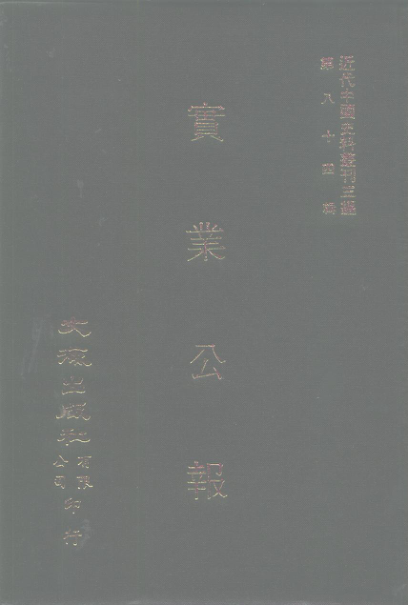 近代中國史料叢刊三編
第八十四輯
實業公報
文海出版社有限公司印行